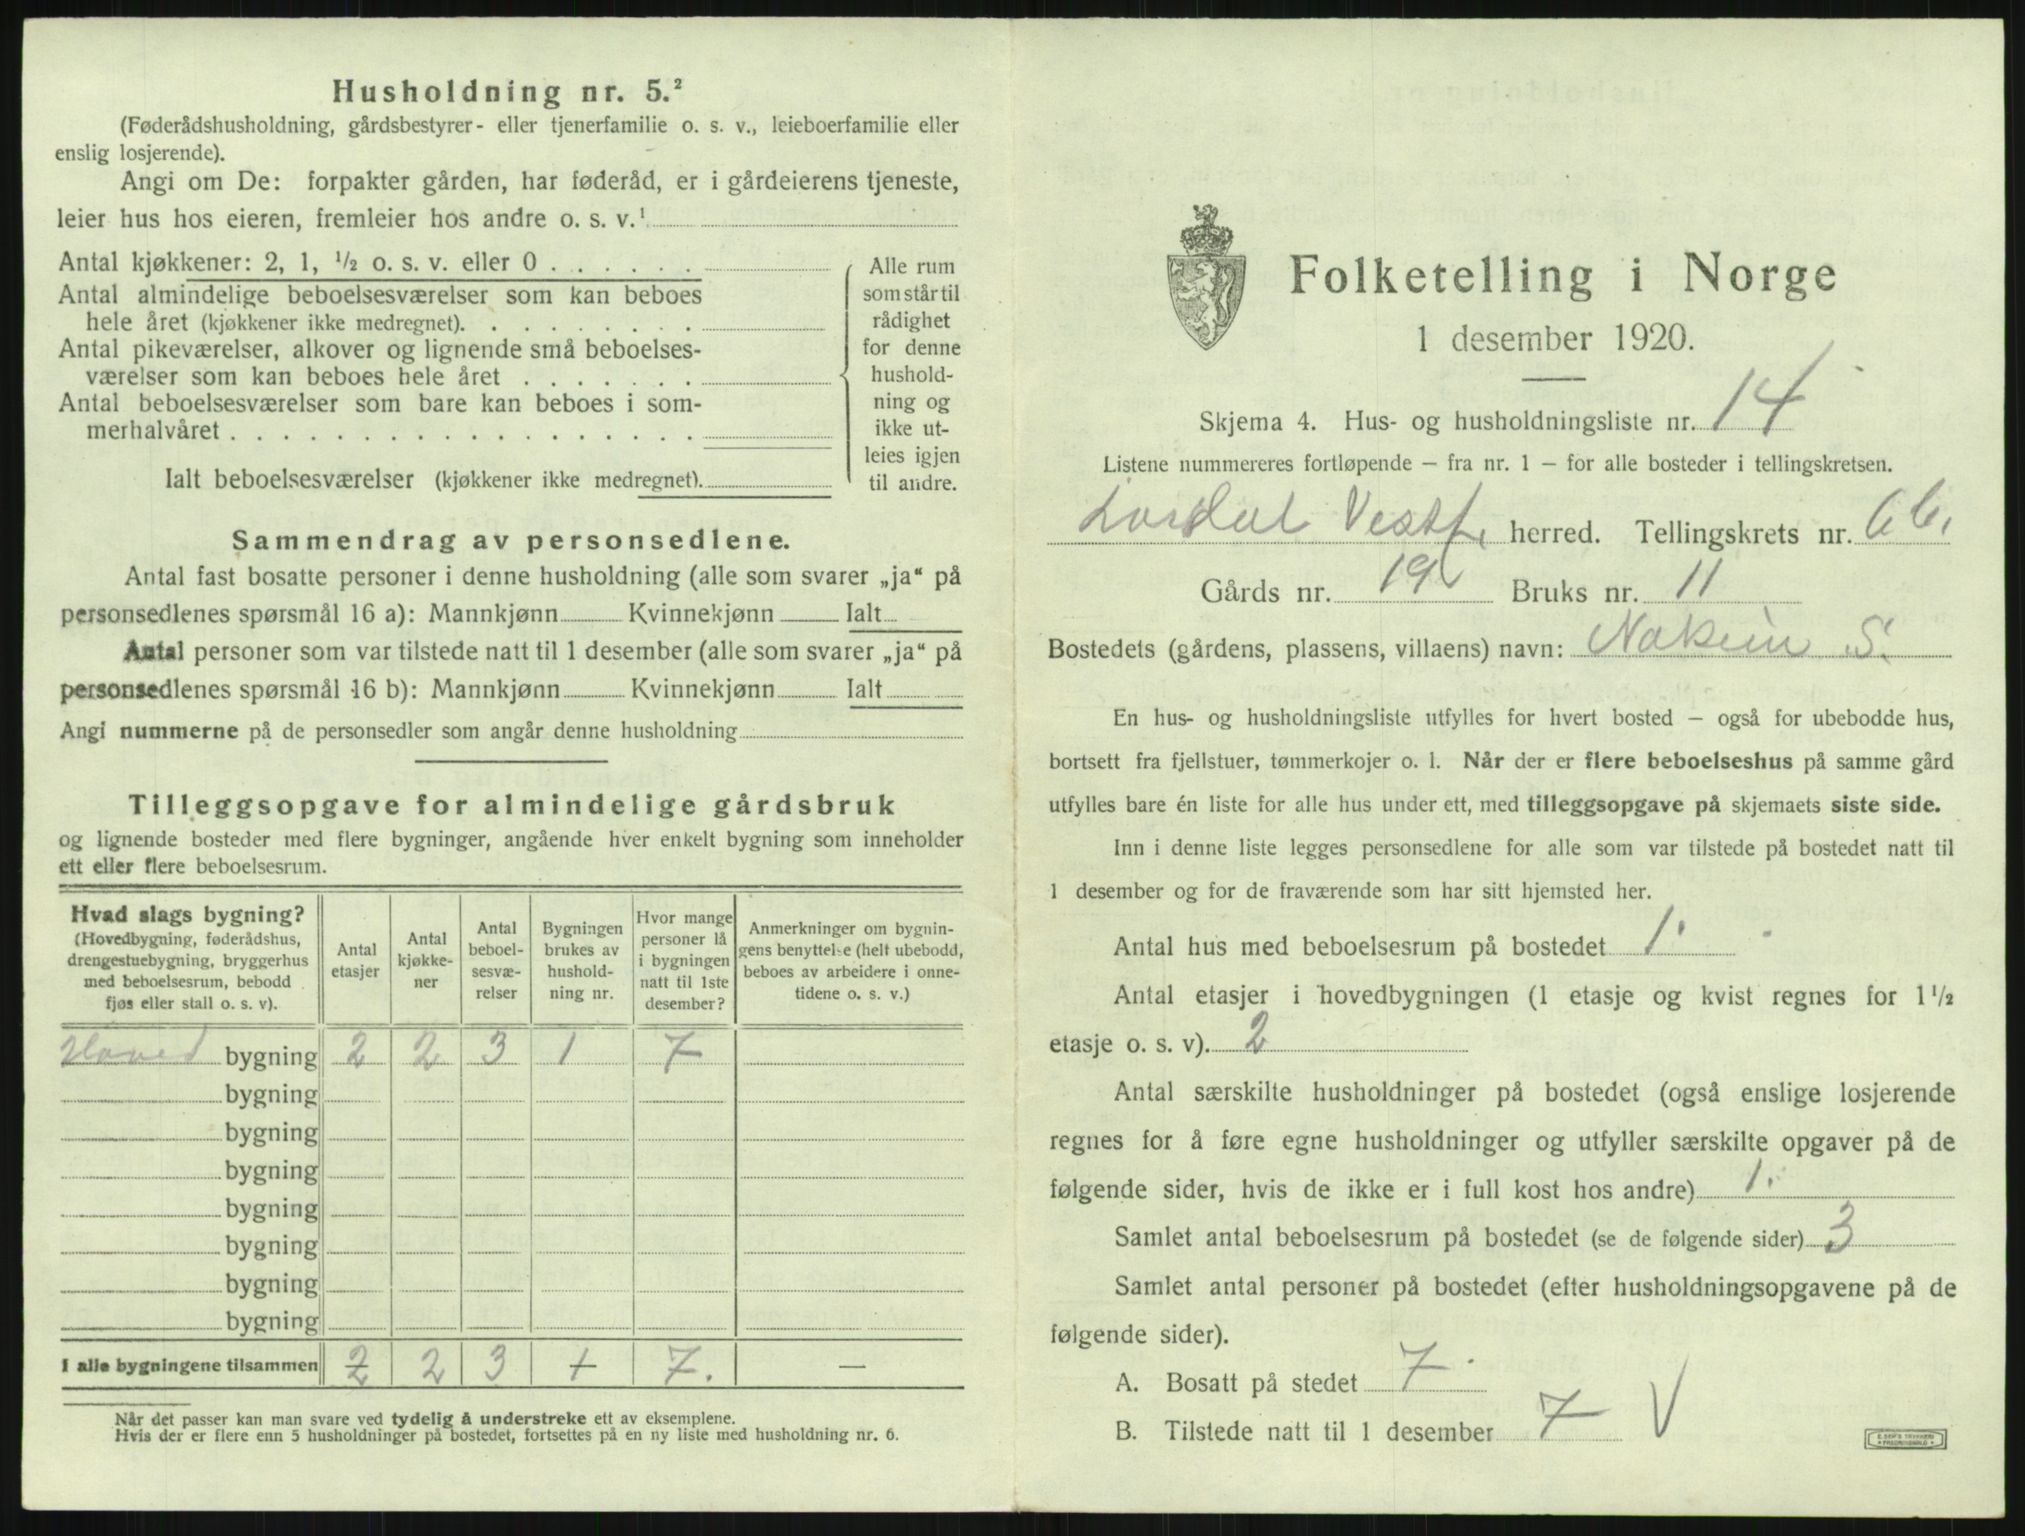 Husholdning nr. 5.²
(Føderådshusholdning, gårdsbestyrer- eller tjenerfamilie o. s. v., leieboerfamilie eller
enslig losjerende).
Angi om De: forpakter gården, har føderåd, er i gårdeierens tjeneste,
leier hus hos eieren, fremleier hos andre o. s. v.¹
Antal kjøkkener: 2, 1, ½ o. s. v. eller 0 . . . . . .
Antal almindelige beboelsesværelser som kan beboes
hele året (kjøkkener ikke medregnet). . . . . . . . .
Antal pikeværelser, alkover og lignende små beboelses-
værelser som kan beboes hele året . . . . . . .
Antal beboelsesværelser som bare kan beboes i som-
merhalvåret . . . . . . . . . . . . . . . . . .
Ialt beboelsesværelser (kjøkkener ikke medregnet).
Alle rum
som står til
rådighet
for denne
hushold-
ning og
ikke ut-
leies igjen
til andre.
Sammendrag av personsedlene.
Antal fast bosatte personer i denne husholdning (alle som svarer „ja“ på
personsedlenes spørsmål 16 a): Mannkjønn Kvinnekjønn Ialt
Antal personer som var tilstede natt til 1 desember (alle som svarer „ja“ på
personsedlenes spørsmål 16 b): Mannkjønn Kvinnekjønn Ialt
Angi nummerne på de personsedler som angår denne husholdning
Tilleggsopgave for almindelige gårdsbruk
og lignende bosteder med flere bygninger, angående hver enkelt bygning som inneholder
ett eller flere beboelsesrum.
Hvad slags bygning?
(Hovedbygning, føderådshus,
drengestuebygning, bryggerhus
med beboelsesrum, bebodd
fjøs eller stall o. s. v).
Antal
etasjer
Antal
kjøkke-
ner
Antal
beboel-
sesvæ-
relser
Bygningen
brukes av
hushold-
ning nr.
Hvor mange
personer lå
i bygningen
natt til 1ste
desember?
Anmerkninger om bygnin-
gens benyttelse (helt ubebodd,
beboes av arbeidere i onne-
tidene o. s. v.)
Hoved bygning 2 2 3 1 7
bygning
bygning
bygning
bygning
bygning
bygning
bygning
I alle bygningene tilsammen 2 2 3 1 7. —
Når det passer kan man svare ved tydelig å understreke ett av eksemplene.
Hvis der er flere enn 5 husholdninger på bostedet, fortsettes på en ny liste med husholdning nr. 6.
Folketelling i Norge
1 desember 1920.
Skjema 4. Hus- og husholdningsliste nr. 14
Listene nummereres fortløpende – fra nr. 1 – for alle bosteder i tellingskretsen.
herred. Tellingskrets nr. 6
Gårds nr. 19 Bruks nr. 11
Bostedets (gårdens, plassens, villaens) navn: S.
En hus- og husholdningsliste utfylles for hvert bosted – også for ubebodde hus,
bortsett fra fjellstuer, tømmerkojer o. l. Når der er flere beboelseshus på samme gård
utfylles bare én liste for alle hus under ett, med tilleggsopgave på skjemaets siste side.
Inn i denne liste legges personsedlene for alle som var tilstede på bostedet natt til
1 desember og for de fraværende som har sitt hjemsted her.
Antal hus med beboelsesrum på bostedet 1.
Antal etasjer i hovedbygningen (1 etasje og kvist regnes for 1½
etasje o. s. v). 2
Antal særskilte husholdninger på bostedet (også enslige losjerende
regnes for å føre egne husholdninger og utfyller særskilte opgaver på de
følgende sider, hvis de ikke er i full kost hos andre) 1.
Samlet antal beboelsesrum på bostedet (se de følgende sider) 3
Samlet antal personer på bostedet (efter husholdningsopgavene på de
følgende sider).
A. Bosatt på stedet 7
B. Tilstede natt til 1 desember 7 V